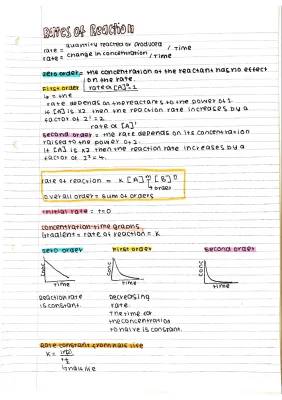 Rates of Reaction
rate = quantity reacted or produced / time
rate = change in concentration / time
zero order = the concentration of the reactant has no effect
on the rate.
rate α [A]⁰ = 1
First order
= the
rate depends on the reactants to the power of 1
if [A] is x2 then the reaction rate increases by a
factor of 2¹ = 2.
rate α [A]¹
second order = the rate depends on its concentration
raised to the power of 2.
if [A] is x2 then the reaction rate increases by a
factor of 2² = 4.
rate of reaction = K [A]ᵐ [B]ⁿ
order
overall order = sum of orders
initial rate: t=0
concentration-time graphs
Gradient = rate of reaction = K
zero order First order second order
conc conc conc
time time time
Reaction rate
is constant.
Decreasing
rate
The time for
the concentration
to halve is constant.
Rate constant from half life
K = ln(2)
t½
half life